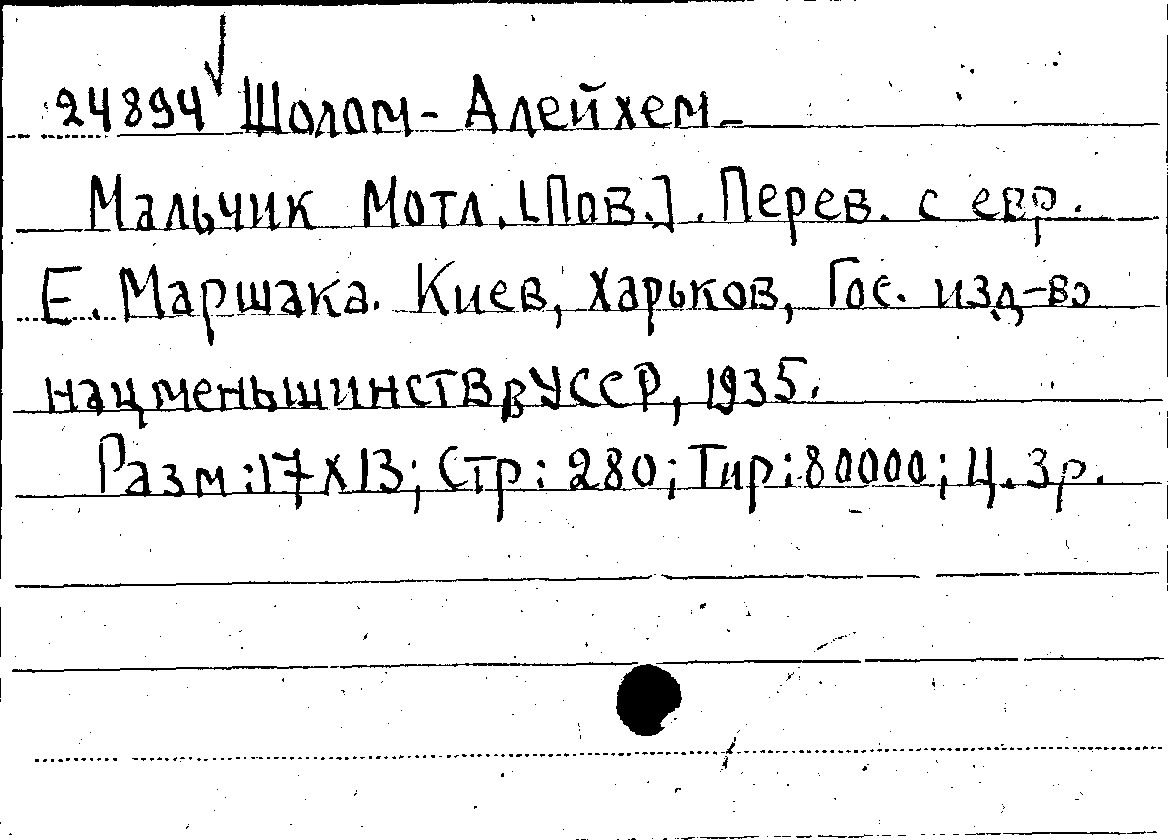 24894 Шолом-Алейхем
Мальчик Мотл. [Пов.]. Перев. с евр.
Е. Маршака. Киев, Харьков, Гос. изд-во
нацменьшинств в УССР, 1935.
Разм:17х13; Стр: 280; Тир:80000; Ц. 3р.